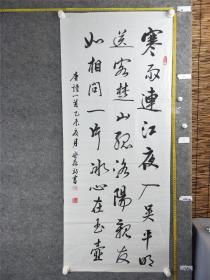 寒雨連江夜入吳平明
送客楚山孤洛陽親友
如相問一片冰心在玉壺
唐詩一首乙 月 書